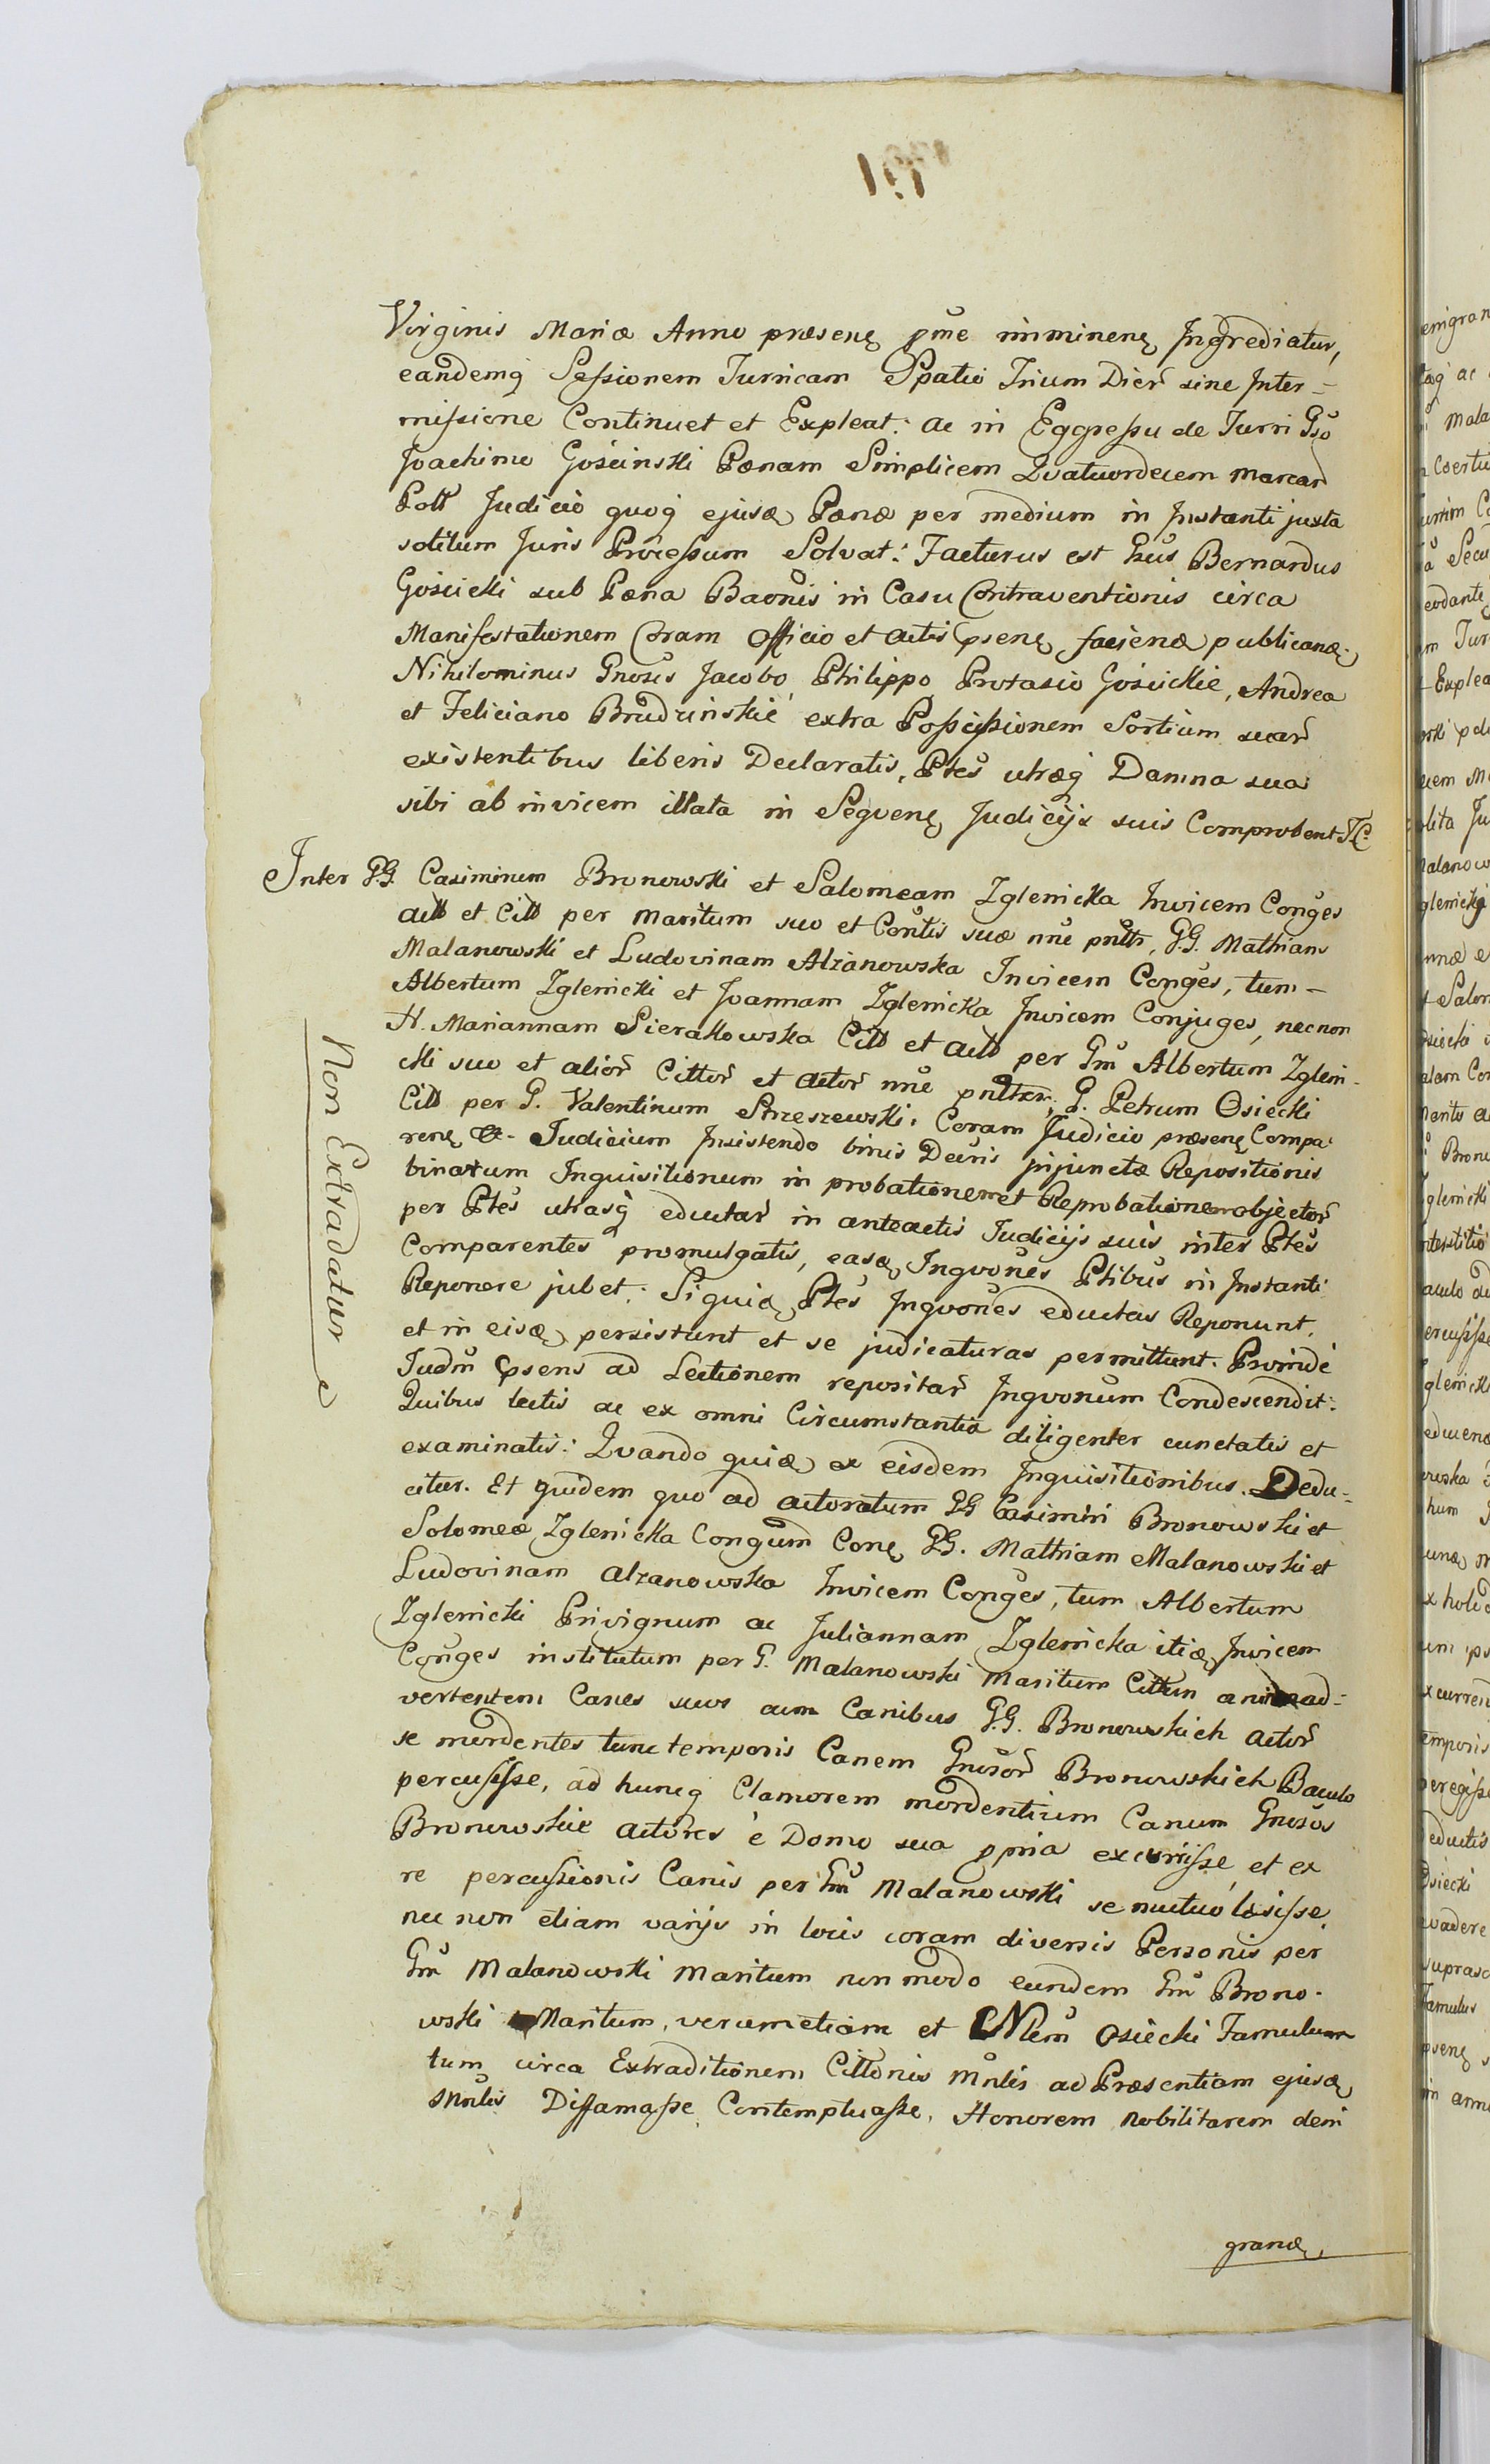 Virginis Mariæ Anno præsenꝫ pme imminenꝫ Ingrediatur,
eandemq Sessionem Turricam Spatio Trium Dier sine Inter=
missione Continuet et Expleat: ac in Eggressu de Turri Gso
Joachimo Gościnski Pœnam Simplicem Qvatuordecem marcar
Poll Judicio quoq ejusꝫ Pœnæ per medium in Instanti juxta
solitum Juris Processum Solvat: Facturus est Bernardus
Gościcki sub Pœna Baonis in Casu Contraventionis circa
Manifestationem Coram Officio et actis psenꝫ facienꝫ publicanꝫ
Nihilominus Gnosis Jacobo, Philippo Protasio Gościckie, Andrea
et Feliciano Brudzinskie extra Possessionem Sortium suar
existentibus liberis Declaratis, Ptes utræq Damna sua
sibi ab invicem illata in Seqvenꝫ Judicijs suis Comprobent
Inter G.G. Casimirum Bronowski et Salomeam Zglenicka Invicem Conges
act et Citt per maritum suo et Contis suæ nne pntt, G.G. Mathiam
Malanowski et Ludovinam Alzanowska Invicem Conges, tum -
Albertum Zglenicki et Joannam Zglenicka Invicem Conjuges, necnon
H. Mariannam Sierakowska Citt et act per Gm Albertum Zgleni-
cki suo et alior Cittor et actor nne pnttem, G. Petrum Osiecki
Citt per G. Valentinum Strzeszewski, Coram Judicio præsenꝫ Compa-
renꝫ &. Judicium Insistendo binis Decris injunctæ Repositionis
binarum Inquisitionum in probationem et Reprobationem objector
per Ptes utrasq eductar in anteactis Judicijs suis inter Ptes
Comparentes promulgatis, easꝫ Inqvones Ptibus in Instanti
Reponere jubet: Siquiꝫ Ptes Inqvones eductas Reponunt,
et in eisꝫ persistunt et se judicaturas permittunt. Proinde
Judm psens ad Lectionem repositar Inqvonum Condescendit:
Quibus lectis ac ex omni Circumstantia diligenter cunctatis et
examinatis: Qvando quiꝫ ex eisdem Inquisitionibus. Dedu=
citur. Et quidem quo ad actoratum GG Casimiri Bronowski et
Solomeæ Zglenicka Congum Conꝫ GG. Mathiam Malanowski et
Ludovinam Alzanowska Invicem Conges, tum Albertum
Zglenicki Privignum ac Juliannam Zglenicka itiꝫ Invicem
Conges institutum per G. Malanowski Maritum Cittum animad=
vertentem Canes suos cum Canibus G.G. Bronowskich actor
se mordentes tunc temporis Canem Gnosor Bronowskich Baculo
percussisse, ad huncq Clamorem mordentium Canum Gnosos
Bronowskie actores è Domo sua ppria excurrisse, et ex
re percussionis Canis per Gm Malanowski se mutuo læsisse,
nec non etiam varijs in locis coram diversis Personis per
Gm Malanowski Maritum non modo eundem Gm Brono-
wski Maritum, verum etiam et Nlem Osiecki Famulum
tum circa Extraditionem Cittonis Mnlis ad Præsentiam ejusꝫ
Mnlis Diffamasse, Contemptuasse, Honorem Nobilitarem deni
granꝫ
Non Extradatur